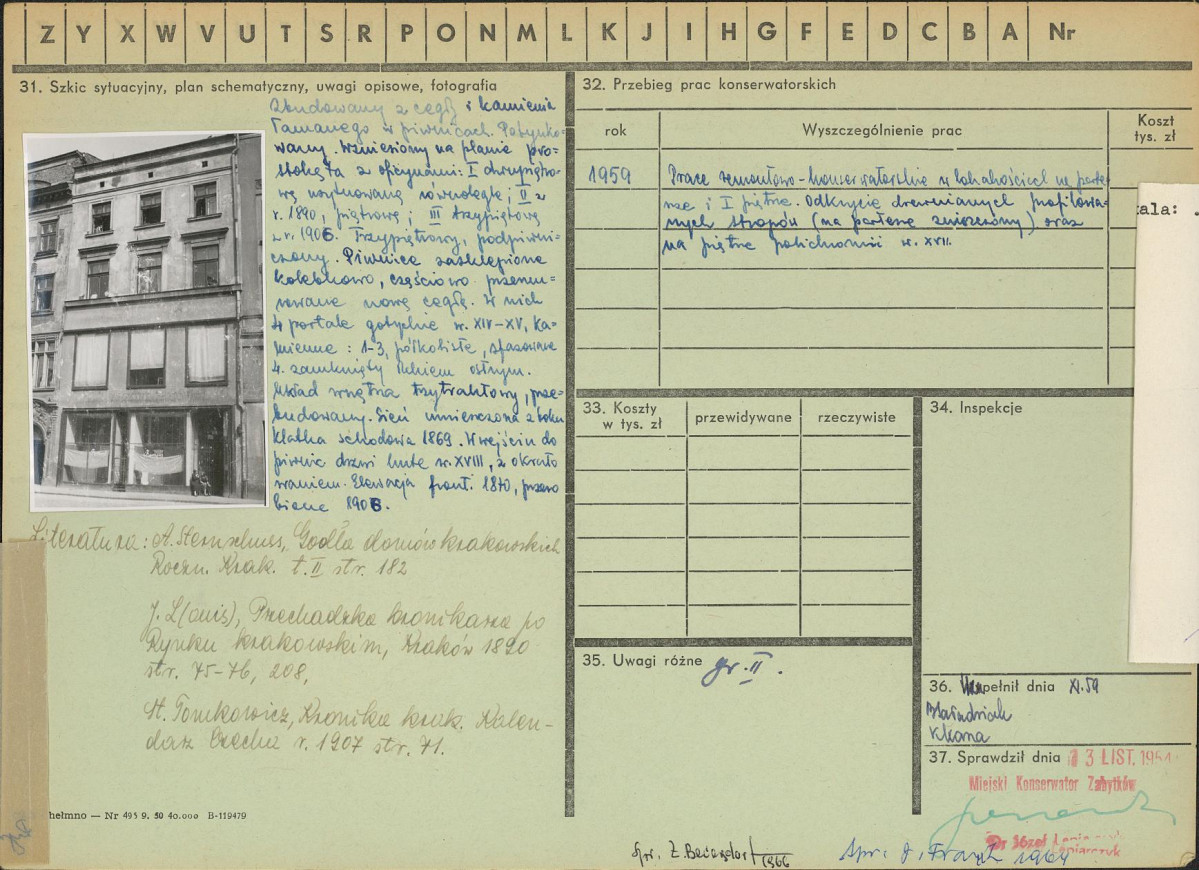 Z Y X W V U T S R P O N M L K J I H G F E D C B A Nr
31. Szkic sytuacyjny, plan schematyczny, uwagi opisowe, fotografia
Zbudowany z cegły i kamienia
łamanego w piwnicach. Potynko-
wany. Wzniesiony na planie pro-
stokąta z oficynami: I dwupiętro-
wą usytuowaną równolegle; II z
r. 1890, piętrową; III trzypiętrową
z r. 1906. Trzypiętrowy, podpiwni-
czony. Piwnice zasklepione
kolebkowo, częściowo przemu-
rowane nową cegłą. W nich
4 portale gotyckie w. XIV-XV, ka-
mienne: 1-3, półkoliste, sfazowane
4. zamknięty łukiem ostrym.
Układ wnętrza trzytraktowy, prze-
budowany. Sień umieszczona z boku
Klatka schodowa 1869. W wejściu do
piwnic drzwi kute w. XVIII, z okrato
waniem. Elewacja front. 1870, przero
biona 1906.
Literatura: A. Sternschuss, Godła domów krakowskich
Roczn. Krak. t. II str. 182
J. L(ouis), Przechadzka kronikarza po
Rynku krakowskim, Kraków 1890
str. 75-76, 208,
St. Tomkowicz, Kronika krak. Kalen-
darz Czecha r. 1907 str. 71.
helmno — Nr 495 9. 50 40.000 B-119479
32. Przebieg prac konserwatorskich
rok
Wyszczególnienie prac
Koszt
tys. zł
1959
Prace remontowo-konserwatorskie w lokalnościach na parte
rze i I piętrze. Odkrycie drewnianych profilowa-
nych stropów (na parterze zniszczony) oraz
na piętrze polichromii w. XVII.
ala:
33. Koszty
w tys. zł
przewidywane
rzeczywiste
34. Inspekcje
35. Uwagi różne gr. II.
36. Wypełnił dnia XI.59
37. Sprawdził dnia 13 LIST. 1964
Miejski Konserwator Zabytków
Dr Józef
Spr. 1966
Spr. 1964